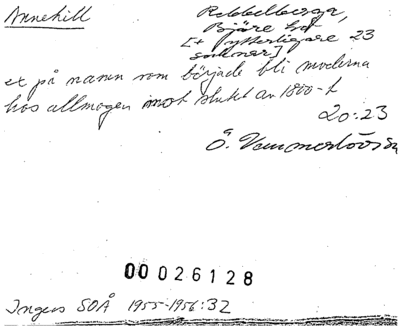 Annehill
Rebbelberga,
Bjäre hd
[+ ytterligare 23
socknar]
ex på namn som började bli moderna
hos allmogen mot slutet av 1800-t
20:23
Ö. Vemmerlöv
00026128
Ingers SOÅ 1955-1956:32